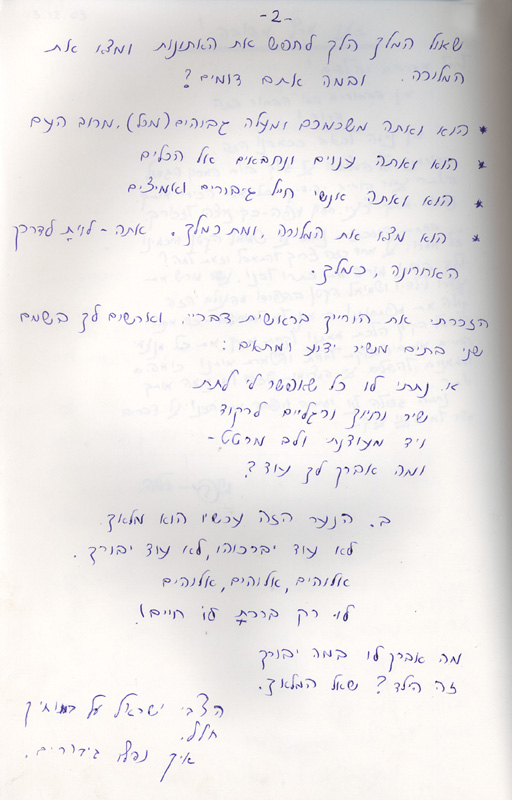 -2-
שאול המלך הלך לחפש את האתונות ומצא את
המלוכה. ובמה אתם דומים?
* הוא ואתה משכמכם ומעלה גבוהים (מכל), מרוב העם
* הוא ואתה ענוים ונחבאים אל הכלים
* הוא ואתה אנשי חייל גיבורים ואמיצים
* הוא מצא את המלוכה, ומת כמלך. אתה - לווית לדרכך
האחרונה, כמלך.
הזכרתי את הוריך בראשית דברי, וארשום לך בשמם
שני בתים משיר ידוע ומתאים:
א. נתתי לו כל שאפשר לי לתת
שיר וחיוך ורגליים לרקוד
ויד מעודנת ולב מרטט -
ומה אברך לך עוד?
ב. הנער הזה עכשיו הוא מלאך
לא עוד יברכוהו, לא עוד יבורך.
אלוהים, אלוהים, אלוהים
לו רק ברכת לו חיים!
מה אברך לו במה יבורך
זה הילד? שאל המלאך.
הצבי ישראל על במותיך
חלל.
איך נפלו גיבורים.